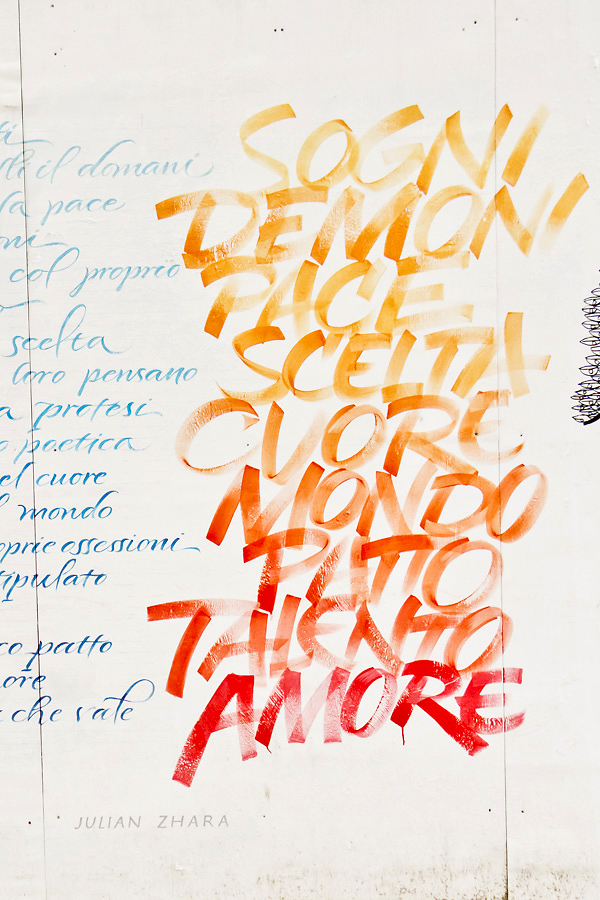 ti
il domani
la pace
oni
col proprio
scelta
loro pensano
a protesi
o poetica
el cuore
l mondo
oprie ossessioni
tipulato
co patto
ore
che vale
SOGNI
DEMONI
PACE
SCELTA
CUORE
MONDO
PATTO
TALENTO
AMORE
JULIAN ZHARA